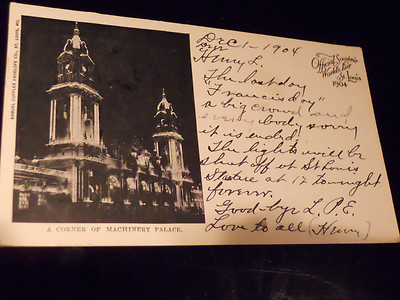 Dec 1 - 1904
Henry L.
The last day
"Francis day"
a big crowd and
every body sorry
it is ended.
The lights will be
shut off at St Louis
Statue at 12 to-night
forever.
Good-bye L. P. E.
Love to all (Henry)
Official Souvenir
World's Fair
St. Louis
1904
SAMUEL CUPPLES ENVELOPE CO., ST. LOUIS, MO.
A CORNER OF MACHINERY PALACE.